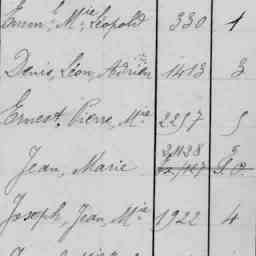 Emm.l Mie Léopold 330 1
Denis, Léon, Adrien 1413 3
Ernest, Pierre, Mie 2257 5
Jean, Marie 2,428 3
Joseph, Jean, Mie 1922 4